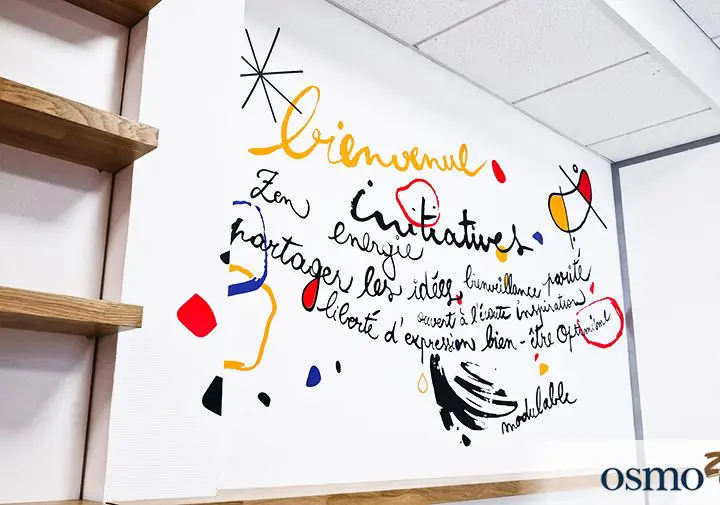 bienvenue
Zen
initiatives
energie
partager les idées, bienveillance parité
ouvert à l'écoute inspiration
liberté d'expression bien-être Optimisme
modulable
osmo